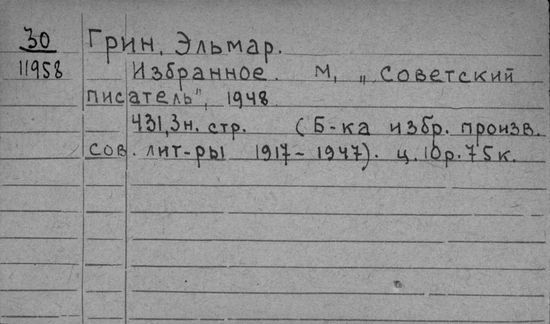 30 Грин, Эльмар.
11958 Избранное. М, „Советский
писатель", 1948
431,3н. стр. (Б-ка избр. произв.
сов. лит-ры 1917-1947). ц. 10р. 75к.